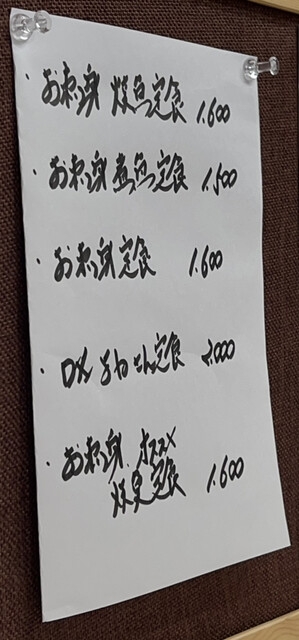 ・お刺身 焼魚定食 1.600
・お刺身 煮魚定食 1.500
・お刺身定食 1.600
・DX さしみ定食 2.000
・お刺身、オススメ
焼魚定食 1.600